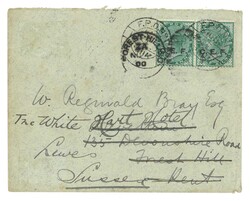 FOREST HILL
W. Reginald Bray Esq
The White Hart Hotel
135 Devonshire Road
Lewes Forest Hill
Sussex Kent